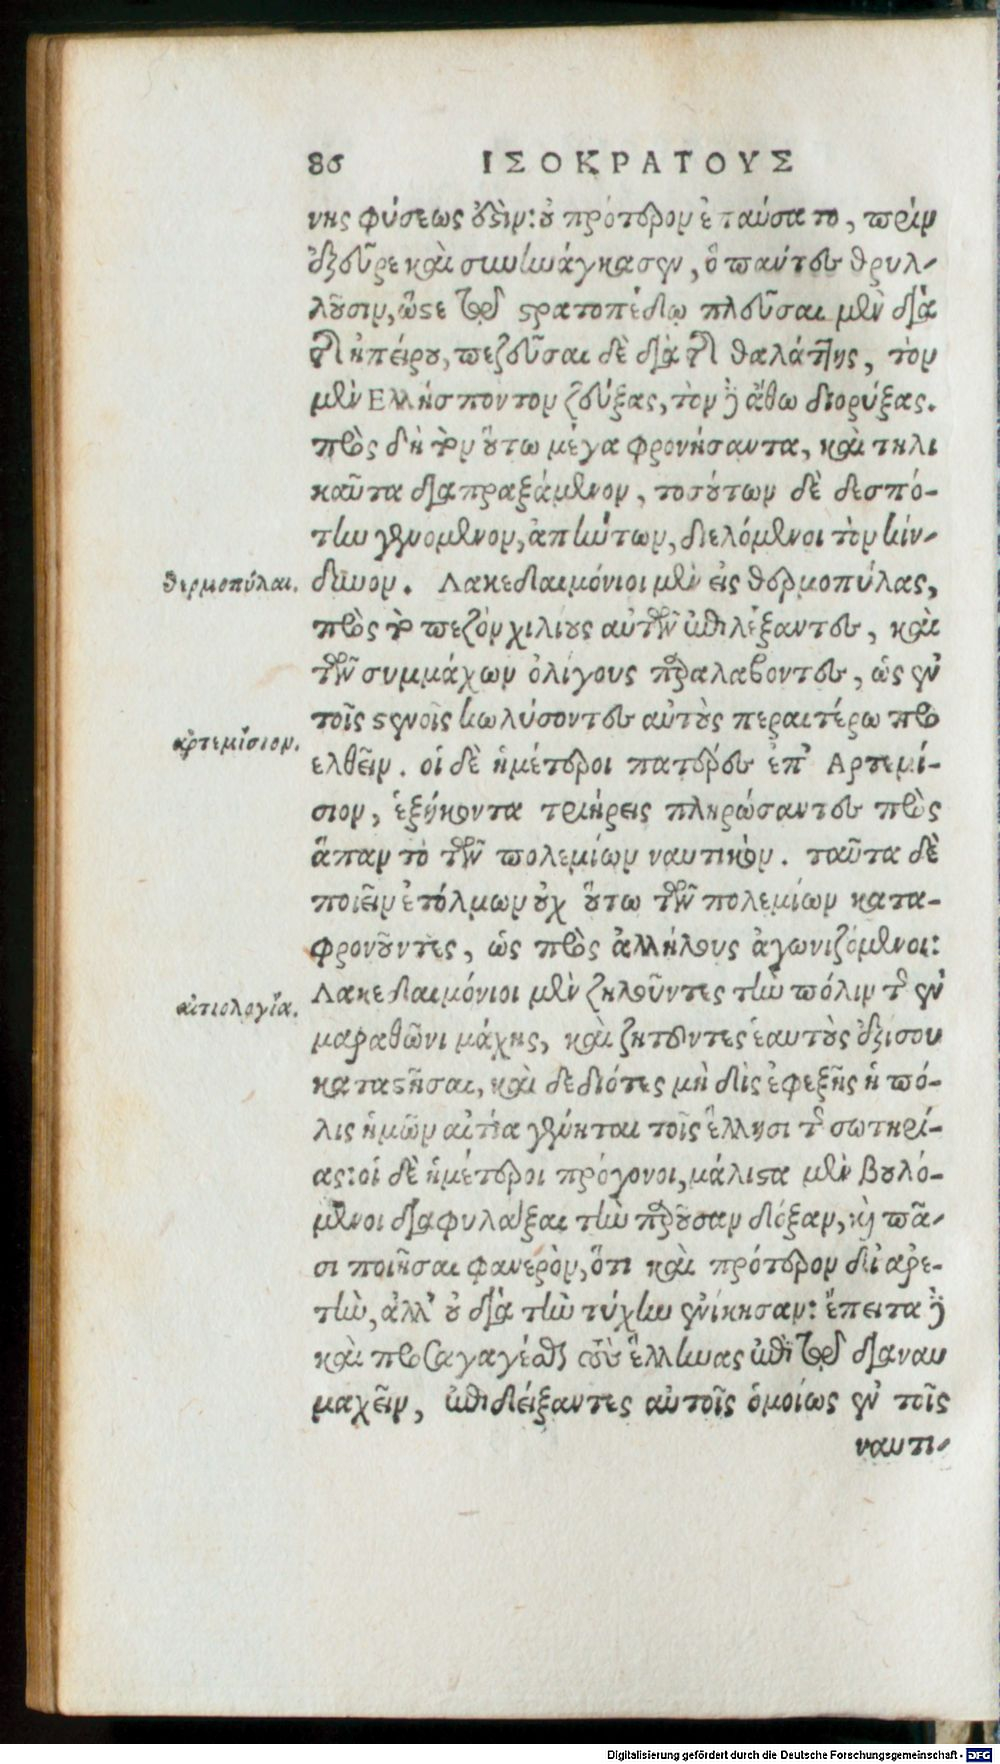 86 ΙΣΟΚΡΑΤΟΥΣ
νης φύσεως ἐςὶν: οὐ πρότερον ἐπαύσατο, πρὶν
ἐξεῦρε καὶ συνηνάγκασεν, ὃ πάντες θρυλ-
λοῦσιν, ὥςε τῷ ςρατοπέδῳ πλεῦσαι μὲν διὰ
τῆς ἠπείρου, πεζεῦσαι δὲ διὰ τῆς θαλάττης, τὸν
μὲν Ελλήσποντον ζεύξας, τὸν δὲ ἄθω διορύξας.
πρὸς δὴ τὸν οὕτω μέγα φρονήσαντα, καὶ τηλι
καῦτα διαπραξάμενον, τοσούτων δὲ δεσπό-
την γενόμενον, ἀπήντων, διελόμενοι τὸν κίν-
θερμοπύλαι.
δυνον. Λακεδαιμόνιοι μὲν εἰς θερμοπύλας,
πρὸς τὸ πεζὸν χιλίους αὐτῶν ἐπιλέξαντες, καὶ
τῶν συμμάχων ὀλίγους παραλαβόντες, ὡς ἐν
τοῖς ςενοῖς κωλύσοντες αὐτοὺς περαιτέρω προ
ἀρτεμίσιον.
ελθεῖν. οἱ δὲ ἡμέτεροι πατέρες ἐπ' Αρτεμί-
σιον, ἑξήκοντα τριήρεις πληρώσαντες πρὸς
ἅπαν τὸ τῶν πολεμίων ναυτικόν. ταῦτα δὲ
ποιεῖν ἐτόλμων οὐχ οὕτω τῶν πολεμίων κατα-
φρονοῦντες, ὡς πρὸς ἀλλήλους ἀγωνιζόμενοι:
αἰτιολογία.
Λακεδαιμόνιοι μὲν ζηλοῦντες τὴν πόλιν τῆς ἐν
μαραθῶνι μάχης, καὶ ζητοῦντες ἑαυτοὺς ἐξισου
καταςῆσαι, καὶ δεδιότες μὴ δὶς ἐφεξῆς ἡ πό-
λις ἡμῶν αἰτία γένηται τοῖς ἕλλησι τῆς σωτηρί-
ας: οἱ δὲ ἡμέτεροι πρόγονοι, μάλιςα μὲν βουλό-
μενοι διαφυλάξαι τὴν παροῦσαν δόξαν, καὶ πᾶ-
σι ποιῆσαι φανερὸν, ὅτι καὶ πρότερον δι' ἀρε-
τὴν, ἀλλ' οὐ διὰ τὴν τύχην ἐνίκησαν: ἔπειτα δὲ
καὶ προσαγαγέσθαι τοὺς ἕλληνας ἐπὶ τῷ διαναυ
μαχεῖν, ἐπιδείξαντες αὐτοῖς ὁμοίως ἐν τοῖς
ναυτι-
Digitalisierung gefördert durch die Deutsche Forschungsgemeinschaft - DFG